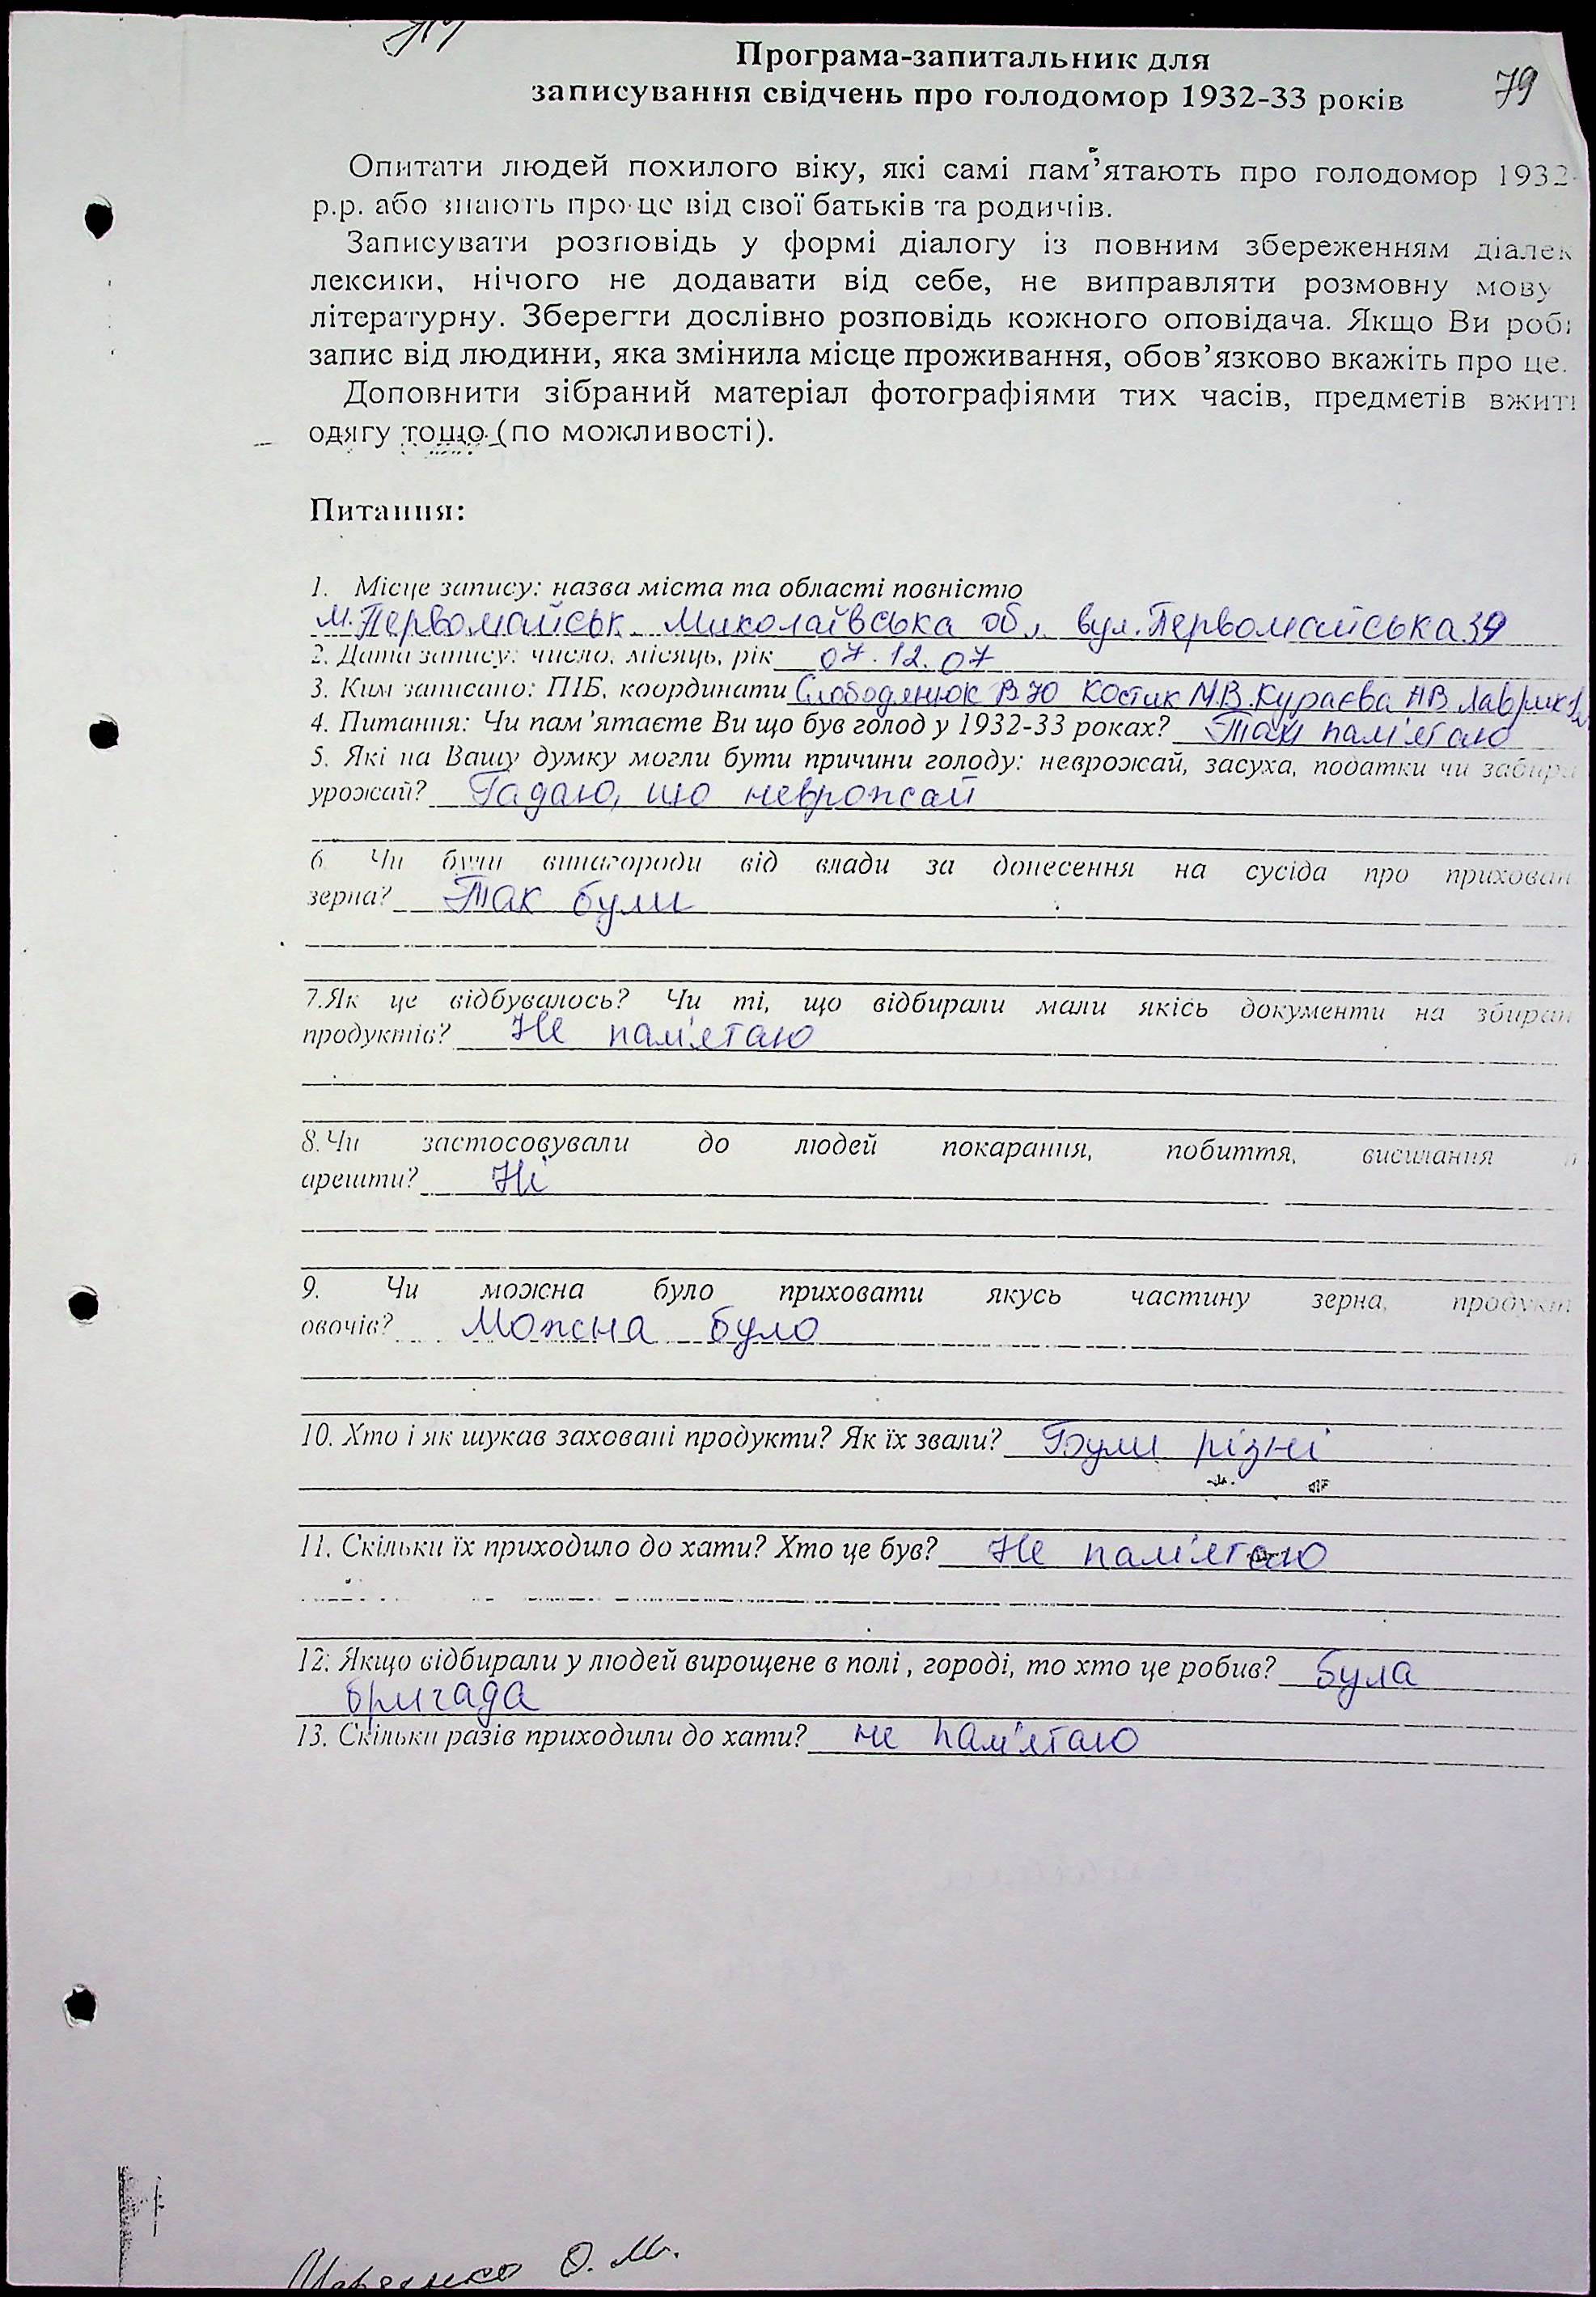 Програма-запитальник для
79
записування свідчень про голодомор 1932-33 років
Опитати людей похилого віку, які самі пам’ятають про голодомор 1932-
р.р. або знають про це від свої батьків та родичів.
Записувати розповідь у формі діалогу із повним збереженням діалек
лексики, нічого не додавати від себе, не виправляти розмовну мову
літературну. Зберегти дослівно розповідь кожного оповідача. Якщо Ви роб
запис від людини, яка змінила місце проживання, обов’язково вкажіть про це.
Доповнити зібраний матеріал фотографіями тих часів, предметів вжит
одягу тощо (по можливості).
Питання:
1. Місце запису: назва міста та області повністю
м. Первомайськ Миколаївська об., вул. Первомайська 39
2. Дата запису: число, місяць, рік 07.12.07
3. Ким записано: ПІБ, координати Слободянюк В Ю Костик М.В. Кураєва А В Лаврик
4. Питання: Чи пам’ятаєте Ви що був голод у 1932-33 роках? Так пам'ятаю
5. Які на Вашу думку могли бути причини голоду: неврожай, засуха, податки чи забира
урожай? Гадаю, що неврожай
6. Чи були винагороди від влади за донесення на сусіда про прихован
зерна? Так були
7.Як це відбувалось? Чи ті, що відбирали мали якісь документи на збиран
продуктів? Не пам'ятаю
8.Чи застосовували до людей покарання, побиття, висилання
арешти? Ні
9. Чи можна було приховати якусь частину зерна, продукт
овочів? Можна було
10. Хто і як шукав заховані продукти? Як їх звали? Були різні
11. Скільки їх приходило до хати? Хто це був? Не пам'ятаю
12. Якщо відбирали у людей вирощене в полі , городі, то хто це робив? була
бригада
13. Скільки разів приходили до хати? не пам'ятаю
О. М.